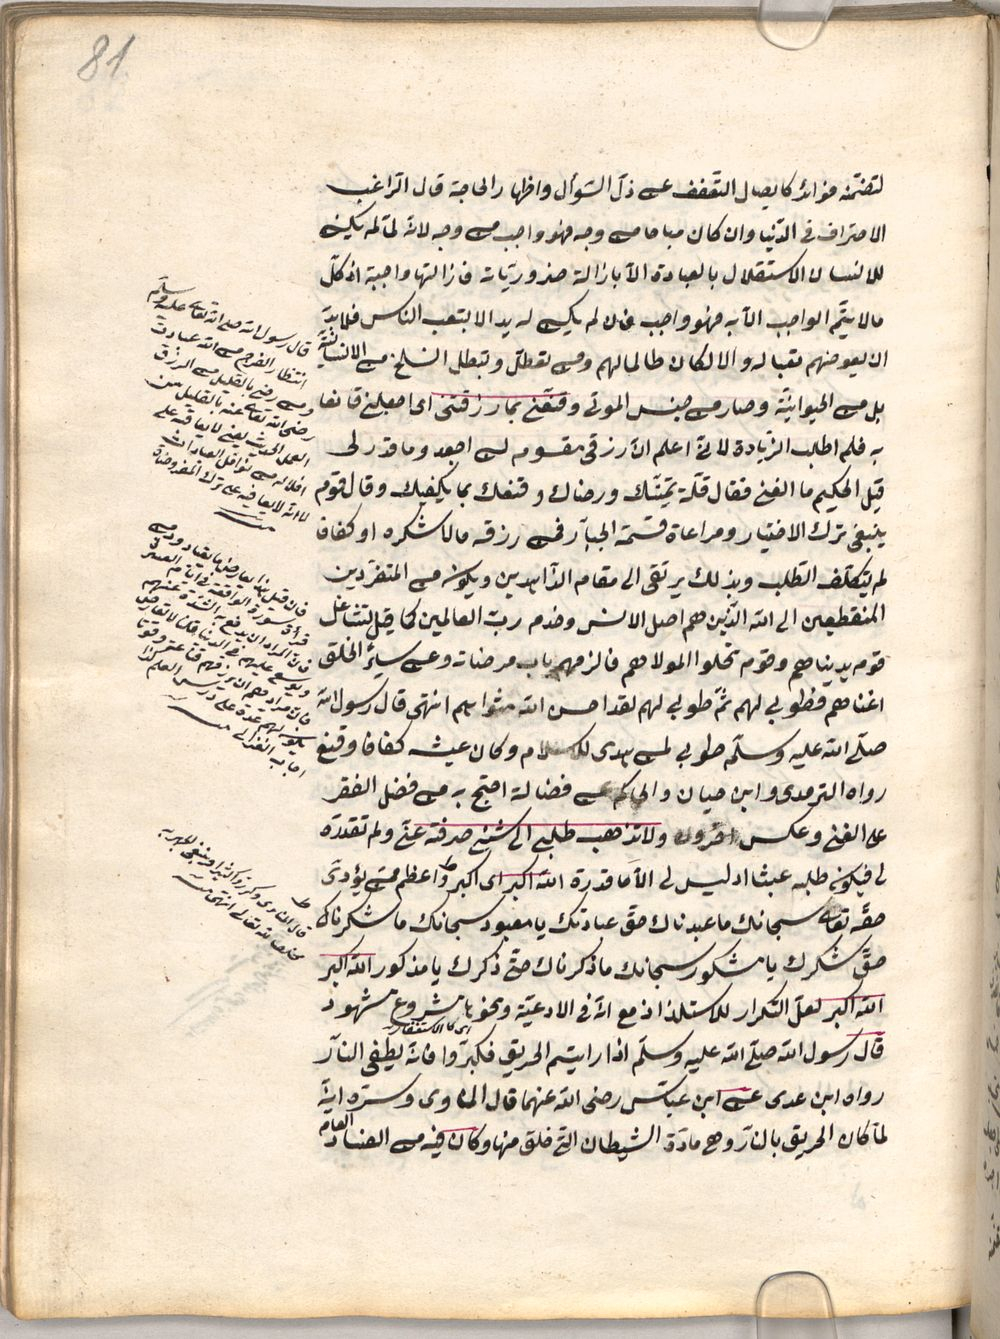 81
لتضمنه فوائد كايصال التعفف عن ذل السؤال واظهار الحاجة قال الراغب
الاحتراف فى الدنيا وان كان مباحا من وجه فهو واجب من وجه لانه لما لم يكن
للانسان الاستقلال بالعبادة الا بازالة ضروريات فازالتها واجبة اذ كل
مالا يتم الواجب الا به فهو واجب فان لم يكن له بد الا بتعب الناس فلابد
ان يعوضهم تعبا له والا لكان ظالما لهم ومن تعطل وتبطل انسلخ من الانسانية
بل من الحيوانية وصار من جنس الموتى وقنعنى بما رزقتنى اى اجعلنى قانعا
به فلم اطلب الزيادة لانى اعلم ان رزقى مقسوم لى اجعد وما قدر لى
قيل لحكيم ما الغنى فقال قلة تمنيك ورضاك وقنعك بما يكفيك وقال قوم
ينبغى ترك الاختيار ومراعاة قسمة الجبار فمن رزقه مالا شكره او كفافا
لم يتكلف الطلب وبذلك يرتقى الى مقام الزاهدين ويكون من المتفردين
المنقطعين الى الله الذين هم اصل الانس وخدم رب العالمين كما قيل تشاغل
قوم بدنياهم وقوم تخلوا لمولاهم فالزمهم باب مرضاته وعن سائر الخلق
اغناهم فطوبى لهم ثم طوبى لهم لقد احسن الله مثواهم انتهى قال رسول الله
صلى الله عليه وسلم طوبى لمن هدى للاسلام وكان عيشه كفافا وقنع
رواه الترمذى وابن حبان والحاكم عن فضالة احتج به من فضل الفقر
على الغنى وعكس اخرون ولا تذهب طلبى الى شئ صرفته عنى ولم تقدره
لى فيكون طلبه عبثا اذ ليس لى الا ما قدرة الله اكبر اى اكبر واعظم من ان يؤدى
حقه تعالى سبحانك ما عبدناك حق عبادتك يا معبود سبحانك ما شكرناك
حق شكرك يا مشكور سبحانك ما ذكرناك حق ذكرك يا مذكور الله اكبر
الله اكبر لعل التكرار للاستلذاذ مع انه فى الادعية ونحوها مشروع مشهود
اى كالاستغفار
قال رسول الله صلى الله عليه وسلم اذا رايتم الحريق فكبروا فانه يطفى النار
رواه ابن عدى عن ابن عباس رضى الله عنهما قال المناوى وسره انه
لما كان الحريق بالنار وهى مادة الشيطان التى خلق منها وكان فيه من الفساد العام
قال رسول الله صلى الله تعالى عليه وسلم
انتظار الفرج من الله عبادة
ومن رضى بالقليل من الرزق
رضى الله تعالى عنه بالقليل من
العمل الحديث يعنى لا يعاقبه على
اقلاله من نوافل العبادات
لا انه لا يعاقبه على ترك المفروضات
منه
فان قيل هذا يعارض ما يعتاد من
قراة سورة الواقعة فى ايام العسرة
فان المراد ان يدفع به الشدة عنهم
ويوسع عليهم فى الدنيا قلنا لا تعارض
فان مرادهم ان يرزقهم قناعة وقوتا
يكون لهم عدة على درس العلم كذا
اجاب الغزالى منه